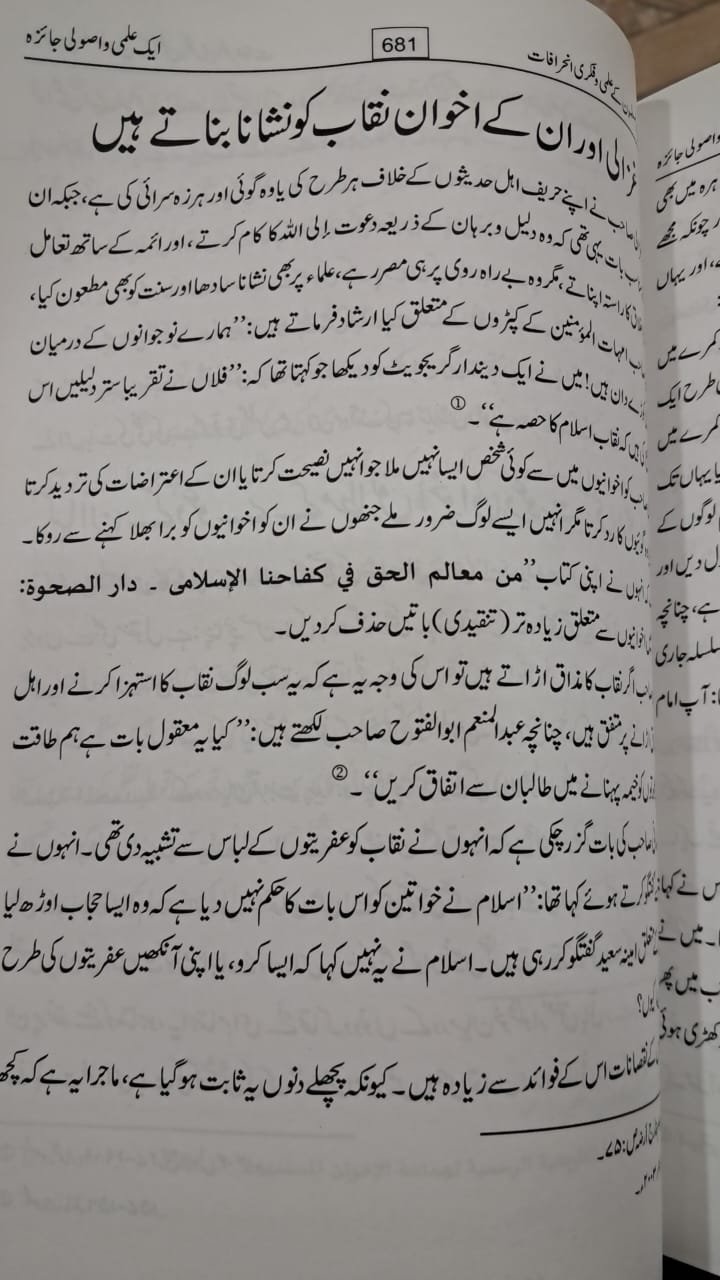 کے علمی و فکری انحرافات
681
ایک علمی و اصولی جائزہ
غزالی اور ان کے اخوان نقاب کو نشانا بناتے ہیں
صاحب نے اپنے حریف اہل حدیثوں کے خلاف ہر طرح کی یاوہ گوئی اور ہرزہ سرائی کی ہے، جبکہ ان
بات یہی تھی کہ وہ دلیل و برہان کے ذریعہ دعوت إلی اللہ کا کام کرتے، اور ائمہ کے ساتھ تعامل
کا راستہ اپناتے، مگر وہ بے راہ روی پر ہی مصر رہے، علماء پر بھی نشانا سادھا اور سنت کو بھی مطعون کیا،
امہات المؤمنین کے کپڑوں کے متعلق کیا ارشاد فرماتے ہیں: ’’ہمارے نوجوانوں کے درمیان
دان ہیں! میں نے ایک دیندار گریجویٹ کو دیکھا جو کہتا تھا کہ: ’’فلاں نے تقریبا ستر دلیلیں اس
کہ نقاب اسلام کا حصہ ہے‘‘۔ ①
کو اخوانیوں میں سے کوئی شخص ایسا نہیں ملا جو انہیں نصیحت کرتا یا ان کے اعتراضات کی تردید کرتا
کا رد کرتا مگر انہیں ایسے لوگ ضرور ملے جنھوں نے ان کو اخوانیوں کو برا بھلا کہنے سے روکا۔
انہوں نے اپنی کتاب ’’من معالم الحق في كفاحنا الإسلامى ۔ دار الصحوة:
اخوانیوں سے متعلق زیادہ تر (تنقیدی) باتیں حذف کر دیں۔
اگر نقاب کا مذاق اڑاتے ہیں تو اس کی وجہ یہ ہے کہ یہ سب لوگ نقاب کا استہزا کرنے اور اہل
پر متفق ہیں، چنانچہ عبدالمنعم ابوالفتوح صاحب لکھتے ہیں: ’’کیا یہ معقول بات ہے ہم طاقت
کو خیمہ پہنانے میں طالبان سے اتفاق کریں‘‘۔ ②
صاحب کی بات گزر چکی ہے کہ انہوں نے نقاب کو عفریتوں کے لباس سے تشبیہ دی تھی۔ انہوں نے
کرتے ہوئے کہا تھا: ’’اسلام نے خواتین کو اس بات کا حکم نہیں دیا ہے کہ وہ ایسا حجاب اوڑھ لیا
امینہ سعید گفتگو کر رہی ہیں۔ اسلام نے یہ نہیں کہا کہ ایسا کرو، یا اپنی آنکھیں عفریتوں کی طرح
کے نقصانات اس کے فوائد سے زیادہ ہیں۔ کیونکہ پچھلے دنوں یہ ثابت ہو گیا ہے، ماجرا یہ ہے کہ کچھ
ص: ۷۵۔